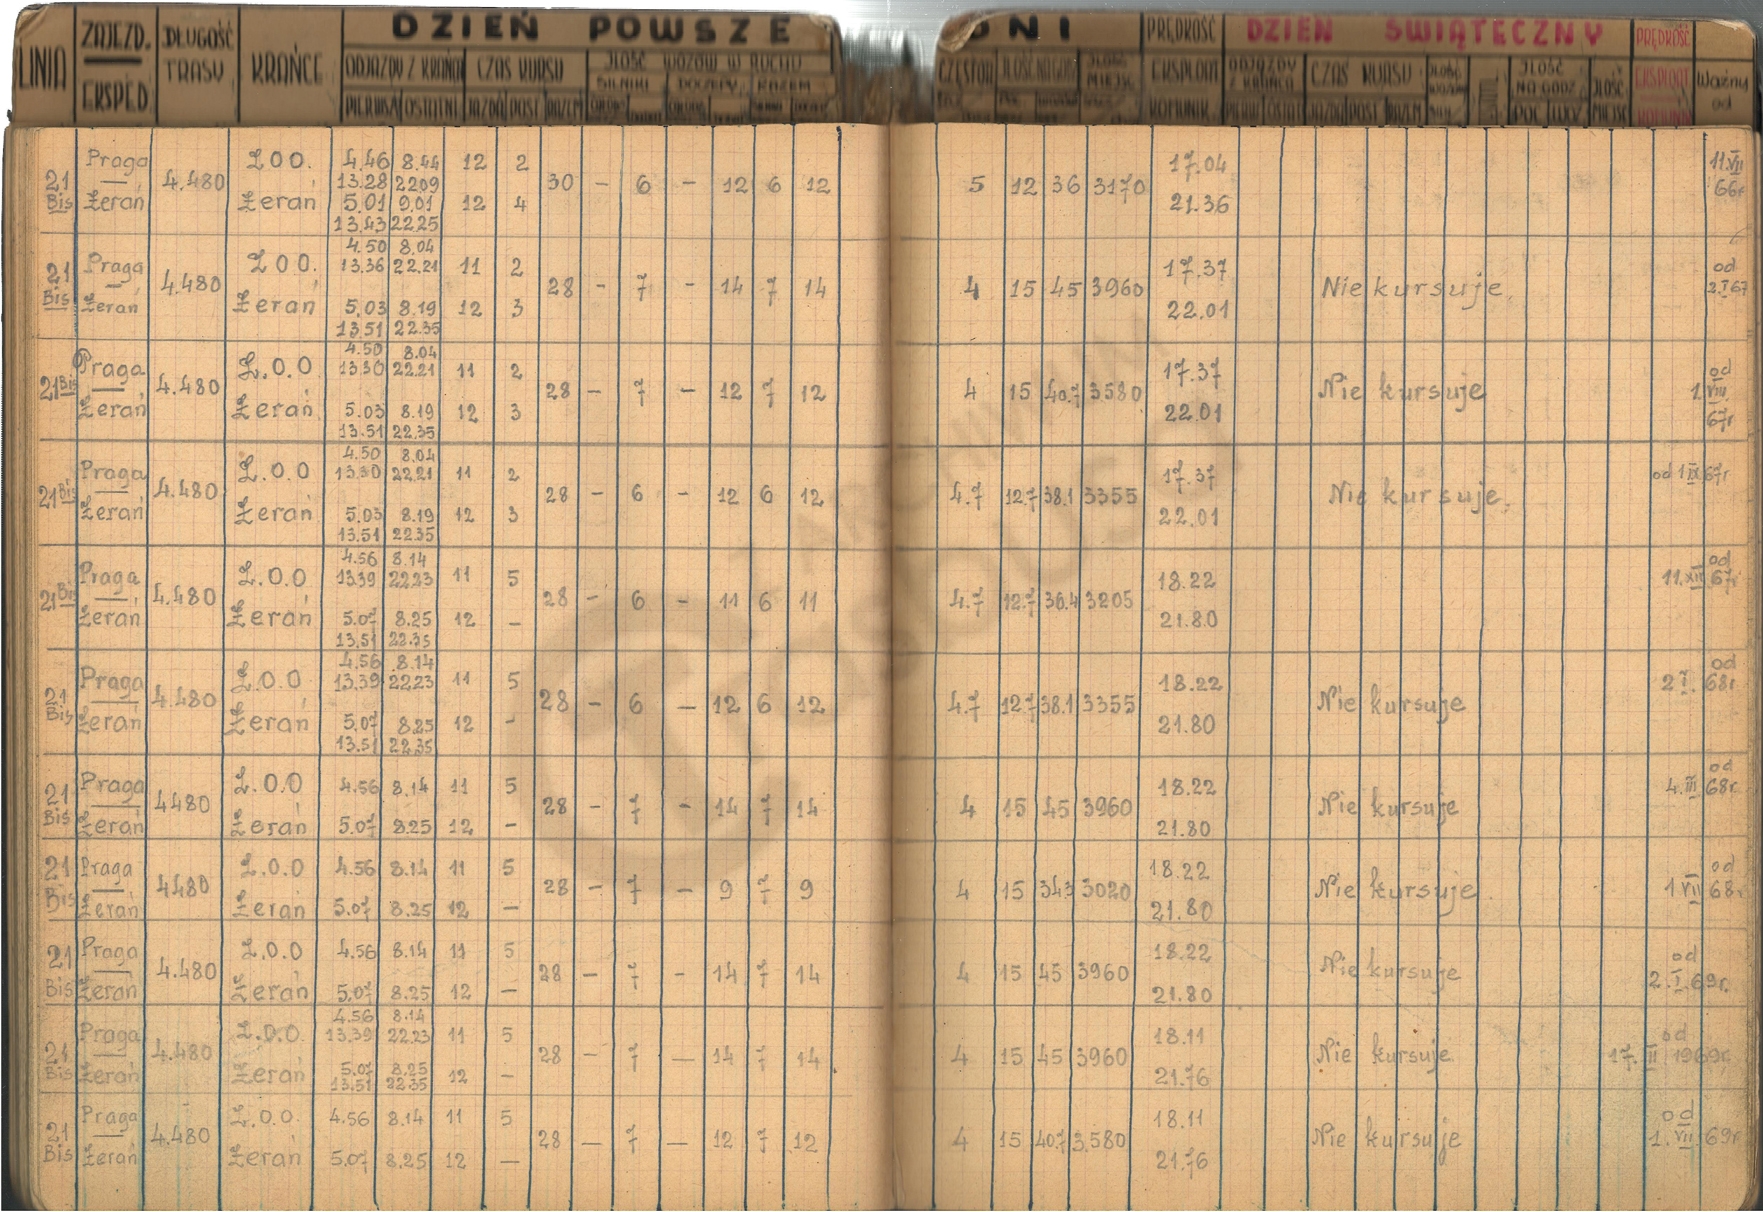 LINIA ZAJEZD. EKSPED. DŁUGOŚĆ TRASY KRAŃCE DZIEŃ POWSZEDNI PRĘDKOŚĆ EKSPLOAT. KOMUNIK. DZIEŃ ŚWIĄTECZNY PRĘDKOŚĆ EKSPLOAT. Ważny od
ODJAZDY Z KRAŃC CZAS KURSU ILOŚĆ WOZÓW W RUCHU CZAS KURSU ILOŚĆ NA GODZ. ILOŚĆ MIEJSC
PIERWSZ OSTATNI JAZDA POST. RAZEM
21 Bis Praga — Żerań 4.480 Z.O.O. 4.46 8.44 12 2
13.28 22.09 30 – 6 – 12 6 12 5 12 36 3170 17.04 11.VII 66r
Żerań 5.01 9.01 12 4 21.36
13.43 22.25
21 Bis Praga — Żerań 4.480 Z.O.O. 4.50 8.04
13.36 22.21 11 2 28 – 7 – 14 7 14 4 15 45 3960 17.37 Nie kursuje. od 2.I 67
Żerań 5.03 8.19 12 3 22.01
13.51 22.35
21 Bis Praga — Żerań 4.480 Z.O.O 4.50 8.04
13.30 22.21 11 2 28 – 7 – 12 7 12 4 15 40.7 3580 17.37 Nie kursuje od 1 VIII 67r
Żerań 5.03 8.19 12 3 22.01
13.51 22.35
21 Bis Praga — Żerań 4.480 Z.O.O 4.50 8.04
13.30 22.21 11 2 28 – 6 – 12 6 12 4.7 12.7 38.1 3355 17.37 Nie kursuje. od 1 IX 67r
Żerań 5.03 8.19 12 3 22.01
13.51 22.35
21 Bis Praga — Żerań 4.480 Z.O.O 4.56 8.14
13.39 22.23 11 5 28 – 6 – 11 6 11 4.7 12.7 36.4 3205 18.22 od 11.XII 67r
Żerań 5.07 8.25 12 – 21.80
13.51 22.35
21 Bis Praga — Żerań 4.480 Z.O.O 4.56 8.14
13.39 22.23 11 5 28 – 6 – 12 6 12 4.7 12.7 38.1 3355 18.22 Nie kursuje od 2 I. 68r
Żerań 5.07 8.25 12 – 21.80
13.51 22.35
21 Bis Praga — Żerań 4480 Z.O.O 4.56 8.14 11 5 28 – 7 – 14 7 14 4 15 45 3960 18.22 Nie kursuje od 4.III 68r
Żerań 5.07 8.25 12 – 21.80
21 Bis Praga — Żerań 4.480 Z.O.O 4.56 8.14 11 5 28 – 7 – 9 7 9 4 15 34.3 3020 18.22 Nie kursuje od 1 VII 68r
Żerań 5.07 8.25 12 – 21.80
21 Bis Praga — Żerań 4.480 Z.O.O 4.56 8.14 11 5 28 – 7 – 14 7 14 4 15 45 3960 18.22 Nie kursuje od 2.I.69r.
Żerań 5.07 8.25 12 – 21.80
21 Bis Praga — Żerań 4.480 Z.O.O. 4.56 8.14
13.39 22.23 11 5 28 – 7 – 14 7 14 4 15 45 3960 18.11 Nie kursuje od 17. II 1969r.
Żerań 5.07 8.25 12 – 21.76
13.51 22.35
21 Bis Praga — Żerań 4.480 Z.O.O. 4.56 8.14 11 5 28 – 7 – 12 7 12 4 15 40.7 3.580 18.11 Nie kursuje od 1. VII 69r
Żerań 5.07 8.25 12 – 21.76